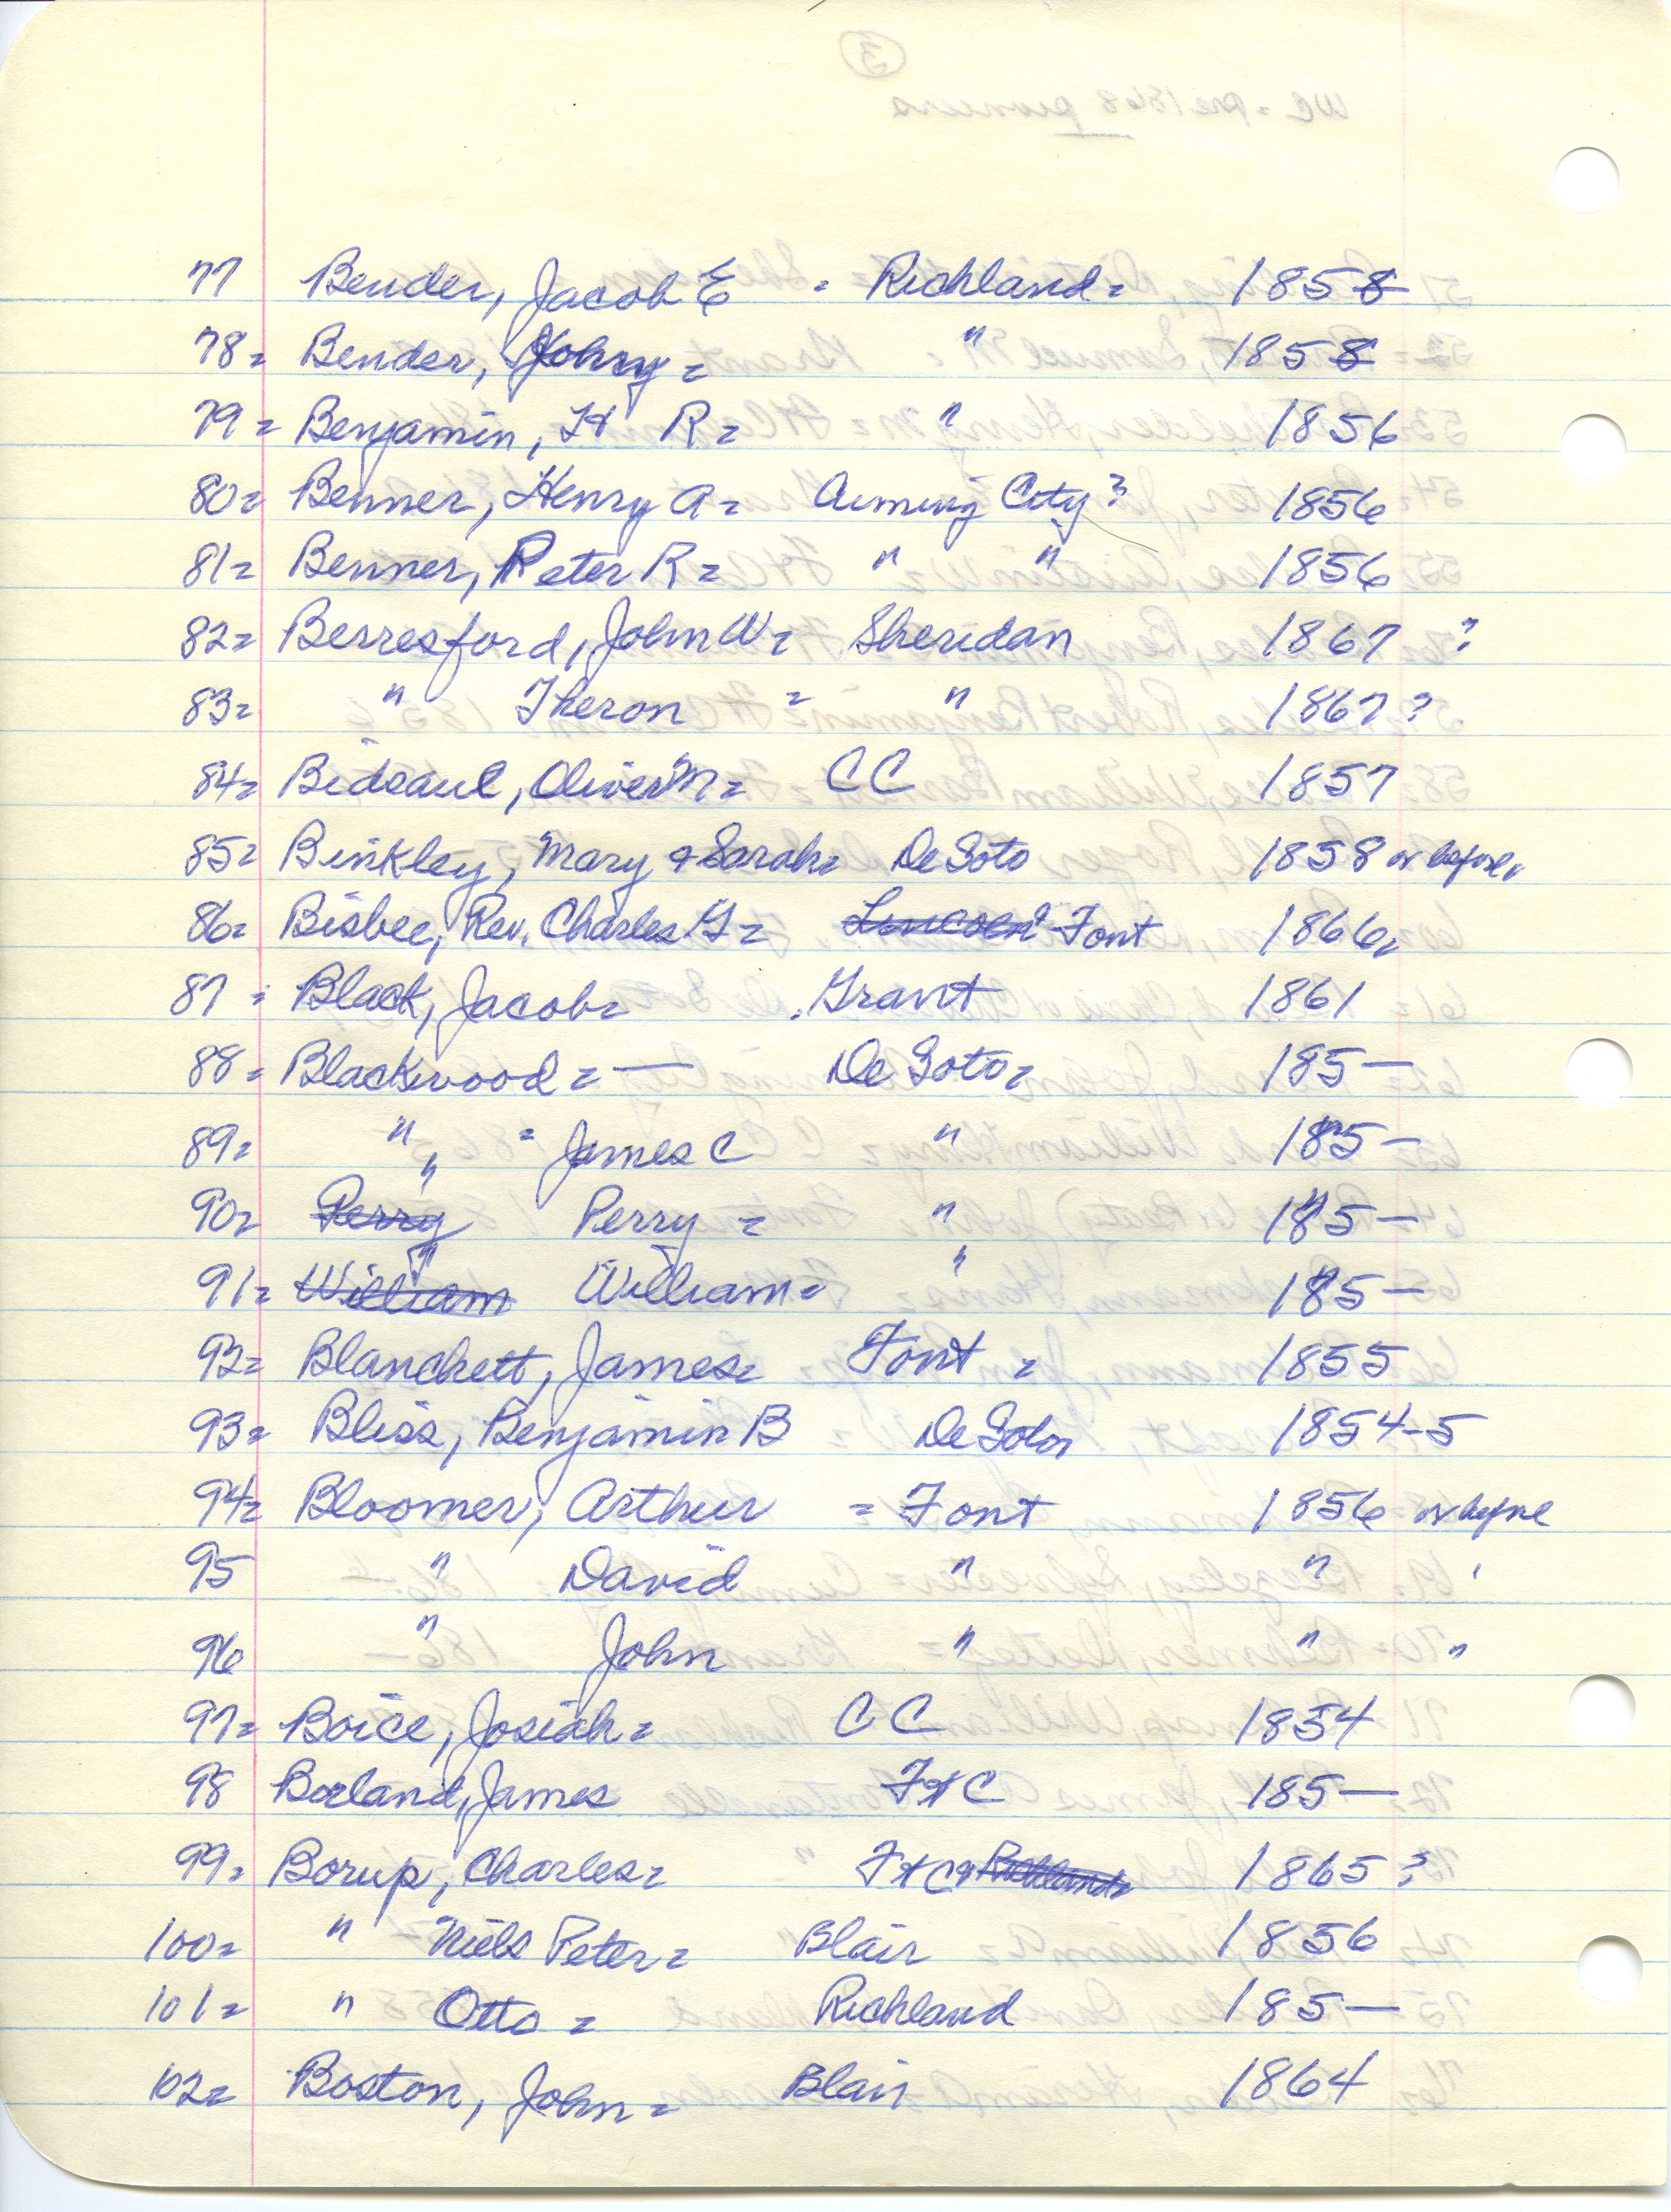 77 Bender, Jacob E = Richland = 1858
78 = Bender, Johny = " 1858
79 = Benjamin, H R = " 1856
80 = Benner, Henry A = Cuming City? 1856
81 = Benner, Peter R = " " 1856
82 = Berresford, John W = Sheridan 1867 ?
83 = " Theron = " 1867 ?
84 = Bidsaul, Oliver M = CC 1857
85 = Binkley, Mary & Sarah = De Soto 1858 or before
86 = Bisbee, Rev. Charles G = Lincoln? Font 1866
87 = Black, Jacob = Grant 1861
88 = Blackwood = — De Soto = 185—
89 = " = James C " 185—
90 = Perry " Perry = " 185—
91 = William " William = " 185—
92 = Blanchett, James = Font = 1855
93 = Bliss, Benjamin B De Soto 1854-5
94 = Bloomer, Arthur = Font 1856 or before
95 " David " " '
96 " John " " "
97 = Boice, Josiah = CC 1854
98 Borland, James Ft C 185—
99 = Borup, Charles = Ft C & Richland 1865 ?
100 = " Niels Peter = Blair 1856
101 = " Otto = Richland 185—
102 = Boston, John = Blair 1864